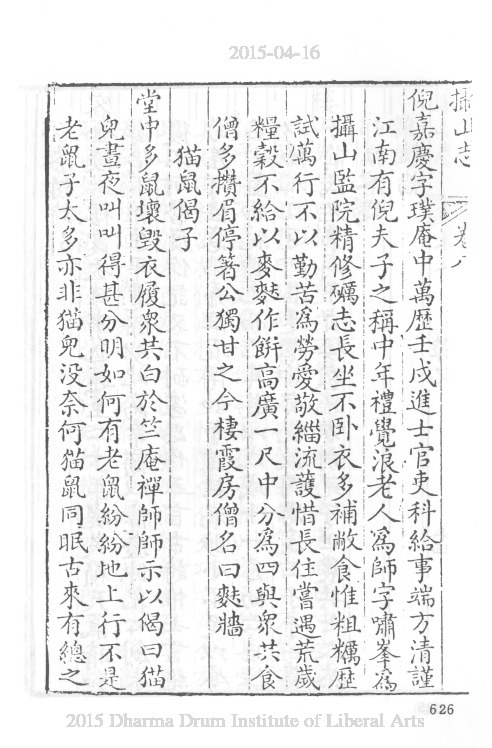 2015-04-16
攝山志 卷八
倪嘉慶字璞庵中萬歷壬戌進士官吏科給事端方清謹
江南有倪夫子之稱中年禮覺浪老人爲師字嘯峯爲
攝山監院精修礪志長坐不卧衣多補敝食惟粗糲歷
試萬行不以勤苦爲勞愛敬緇流護惜長住嘗遇荒歲
糧穀不給以麥麩作餅高廣一尺中分爲四與衆共食
僧多攢眉停箸公獨甘之今棲霞房僧名曰麩牆
猫鼠偈子
堂中多鼠壞毀衣履衆共白於竺庵禪師師示以偈曰猫
兒晝夜叫叫得甚分明如何有老鼠紛紛地上行不是
老鼠子太多亦非猫兒没奈何猫鼠同眠古來有總之
626
2015 Dharma Drum Institute of Liberal Arts